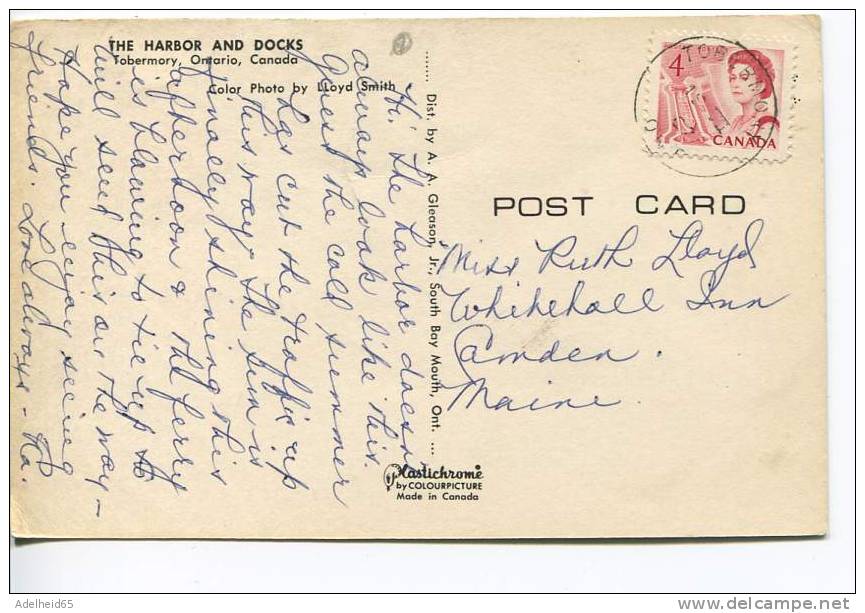 THE HARBOR AND DOCKS
Tobermory, Ontario, Canada
Color Photo by Lloyd Smith
Hi. The harbor doesn't
always look like this.
Guess the cold summer
has cut the traffic up
this way. The sun is
finally shining this
afternoon & the ferry
is blowing to tie up so
will send this on the way –
Hope you enjoy seeing
friends. Love always –
Dist. by A. A. Gleason, Jr., South Bay Mouth, Ont.
Plastichrome
by COLOURPICTURE
Made in Canada
4
CANADA
TOBERMORY
POST CARD
Miss Ruth Lloyd
Whitehall Inn
Camden.
Maine.
© Adelheid65
http://www.delcampe.net